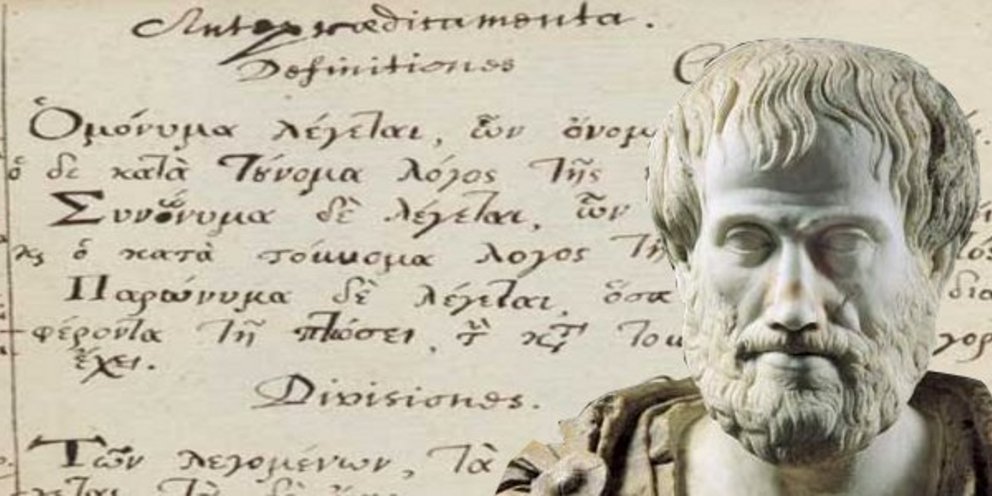 Antepraedicamenta.
Definitiones
Ὁμόνυμα λέγεται, ὧν ὄνομ
ὁ δὲ κατὰ τὔνομα λόγος τῆς
Συνώνυμα δὲ λέγεται, ὧν
κς ὁ κατὰ τοὔνομα λογος τῆ
Παρώνυμα δὲ λέγεται, ὅσα δια
φέροντα τῇ πτώσει, του γορ
ἔχει.
Divisiones.
Τῶν λεγομένων, τὰ